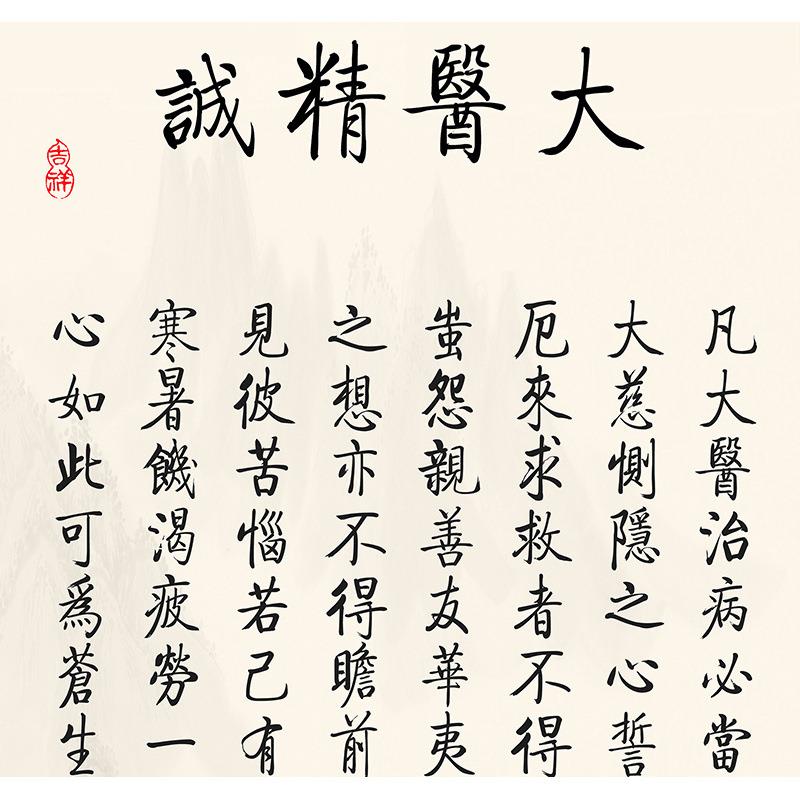 大醫精誠
凡大醫治病必當
大慈惻隱之心誓
厄來求救者不得
蚩怨親善友華夷
之想亦不得瞻前
見彼苦惱若己有
寒暑饑渴疲勞一
心如此可為蒼生
吉祥